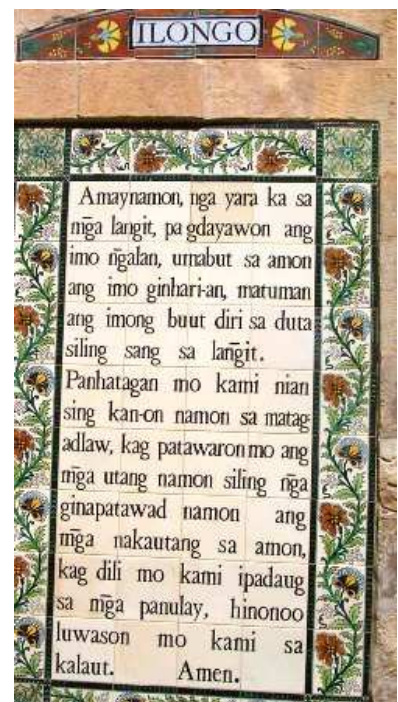 ILONGO
Amaynamon, nga yara ka sa
mg̃a langit, pagdayawon ang
imo ng̃alan, umabut sa amon
ang imo ginhari-an, matuman
ang imong buut diri sa duta
siling sang sa lang̃it.
Panhatagan mo kami nian
sing kan-on namon sa matag-
adlaw, kag patawaron mo ang
mg̃a utang namon siling ng̃a
ginapatawad namon ang
mg̃a nakautang sa amon,
kag dili mo kami ipadaug
sa mg̃a panulay, hinonoo
luwason mo kami sa
kalaut. Amen.